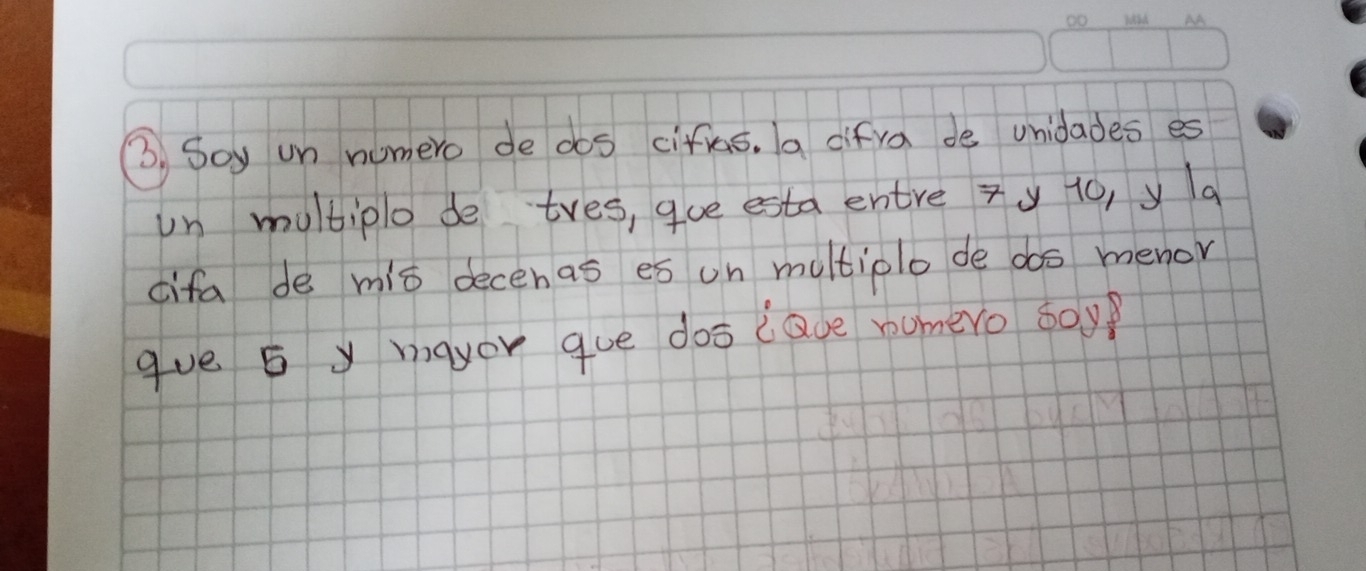 DD MM AA
3. Soy un numero de dos cifras. la cifra de unidades es
un multiplo de tres, que esta entre 7 y 10, y la
cifa de mis decenas es un multiplo de dos menor
que 5 y mayor que dos ¿Que numero soy?